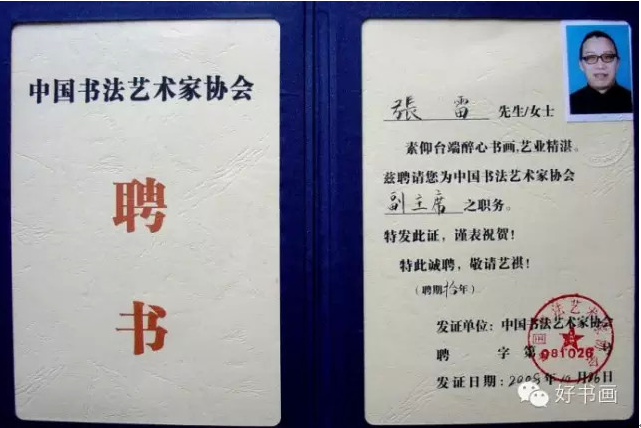 中国书法艺术家协会
聘
书
張 雷 先生/女士
素仰台端醉心书画,艺业精湛。
兹聘请您为中国书法艺术家协会
副主席 之职务。
特发此证，谨表祝贺!
特此诚聘，敬请艺祺!
(聘期拾年)
发证单位: 中国书法艺术家协会
聘 字 第 081026 号
发证日期: 2008年10月26日
好书画